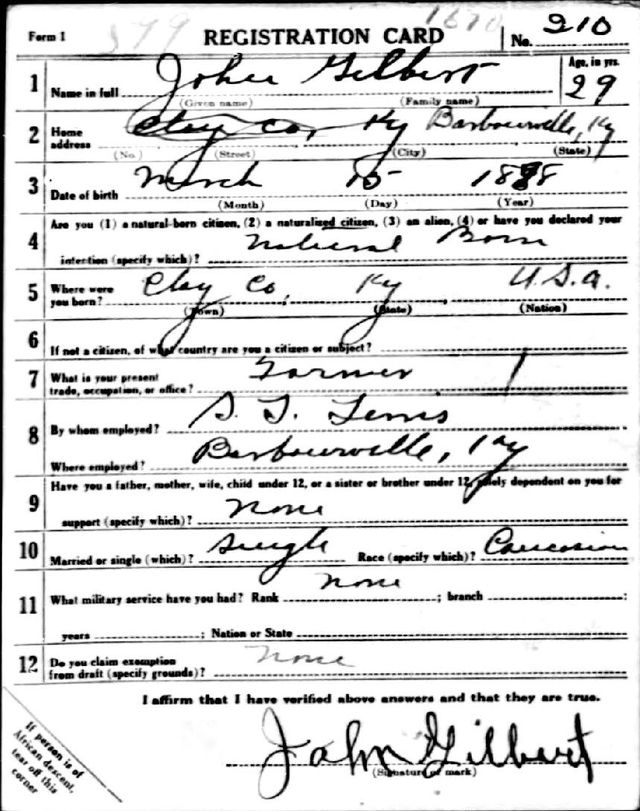 Form 1 REGISTRATION CARD No. 210
1 Name in full John Gilbert Age, in yrs. 29
(Given name) (Family name)
2 Home address Clay Co, Ky Barbourville, Ky
(No.) (Street) (City) (State)
3 Date of birth March 15 1888
(Month) (Day) (Year)
4 Are you (1) a natural-born citizen, (2) a naturalized citizen, (3) an alien, (4) or have you declared your
intention (specify which)? Natural Born
5 Where were you born? Clay Co, Ky U.S.A.
(Town) (State) (Nation)
6 If not a citizen, of what country are you a citizen or subject?
7 What is your present trade, occupation, or office? Farmer
8 By whom employed? S. T.
Where employed? Barbourville, Ky
9 Have you a father, mother, wife, child under 12, or a sister or brother under 12, solely dependent on you for
support (specify which)? None
10 Married or single (which)? Single Race (specify which)? Caucasian
11 What military service have you had? Rank None ; branch ;
years ; Nation or State
12 Do you claim exemption from draft (specify grounds)? None
I affirm that I have verified above answers and that they are true.
John Gilbert
(Signature or mark)
If person is of
African descent,
tear off this
corner